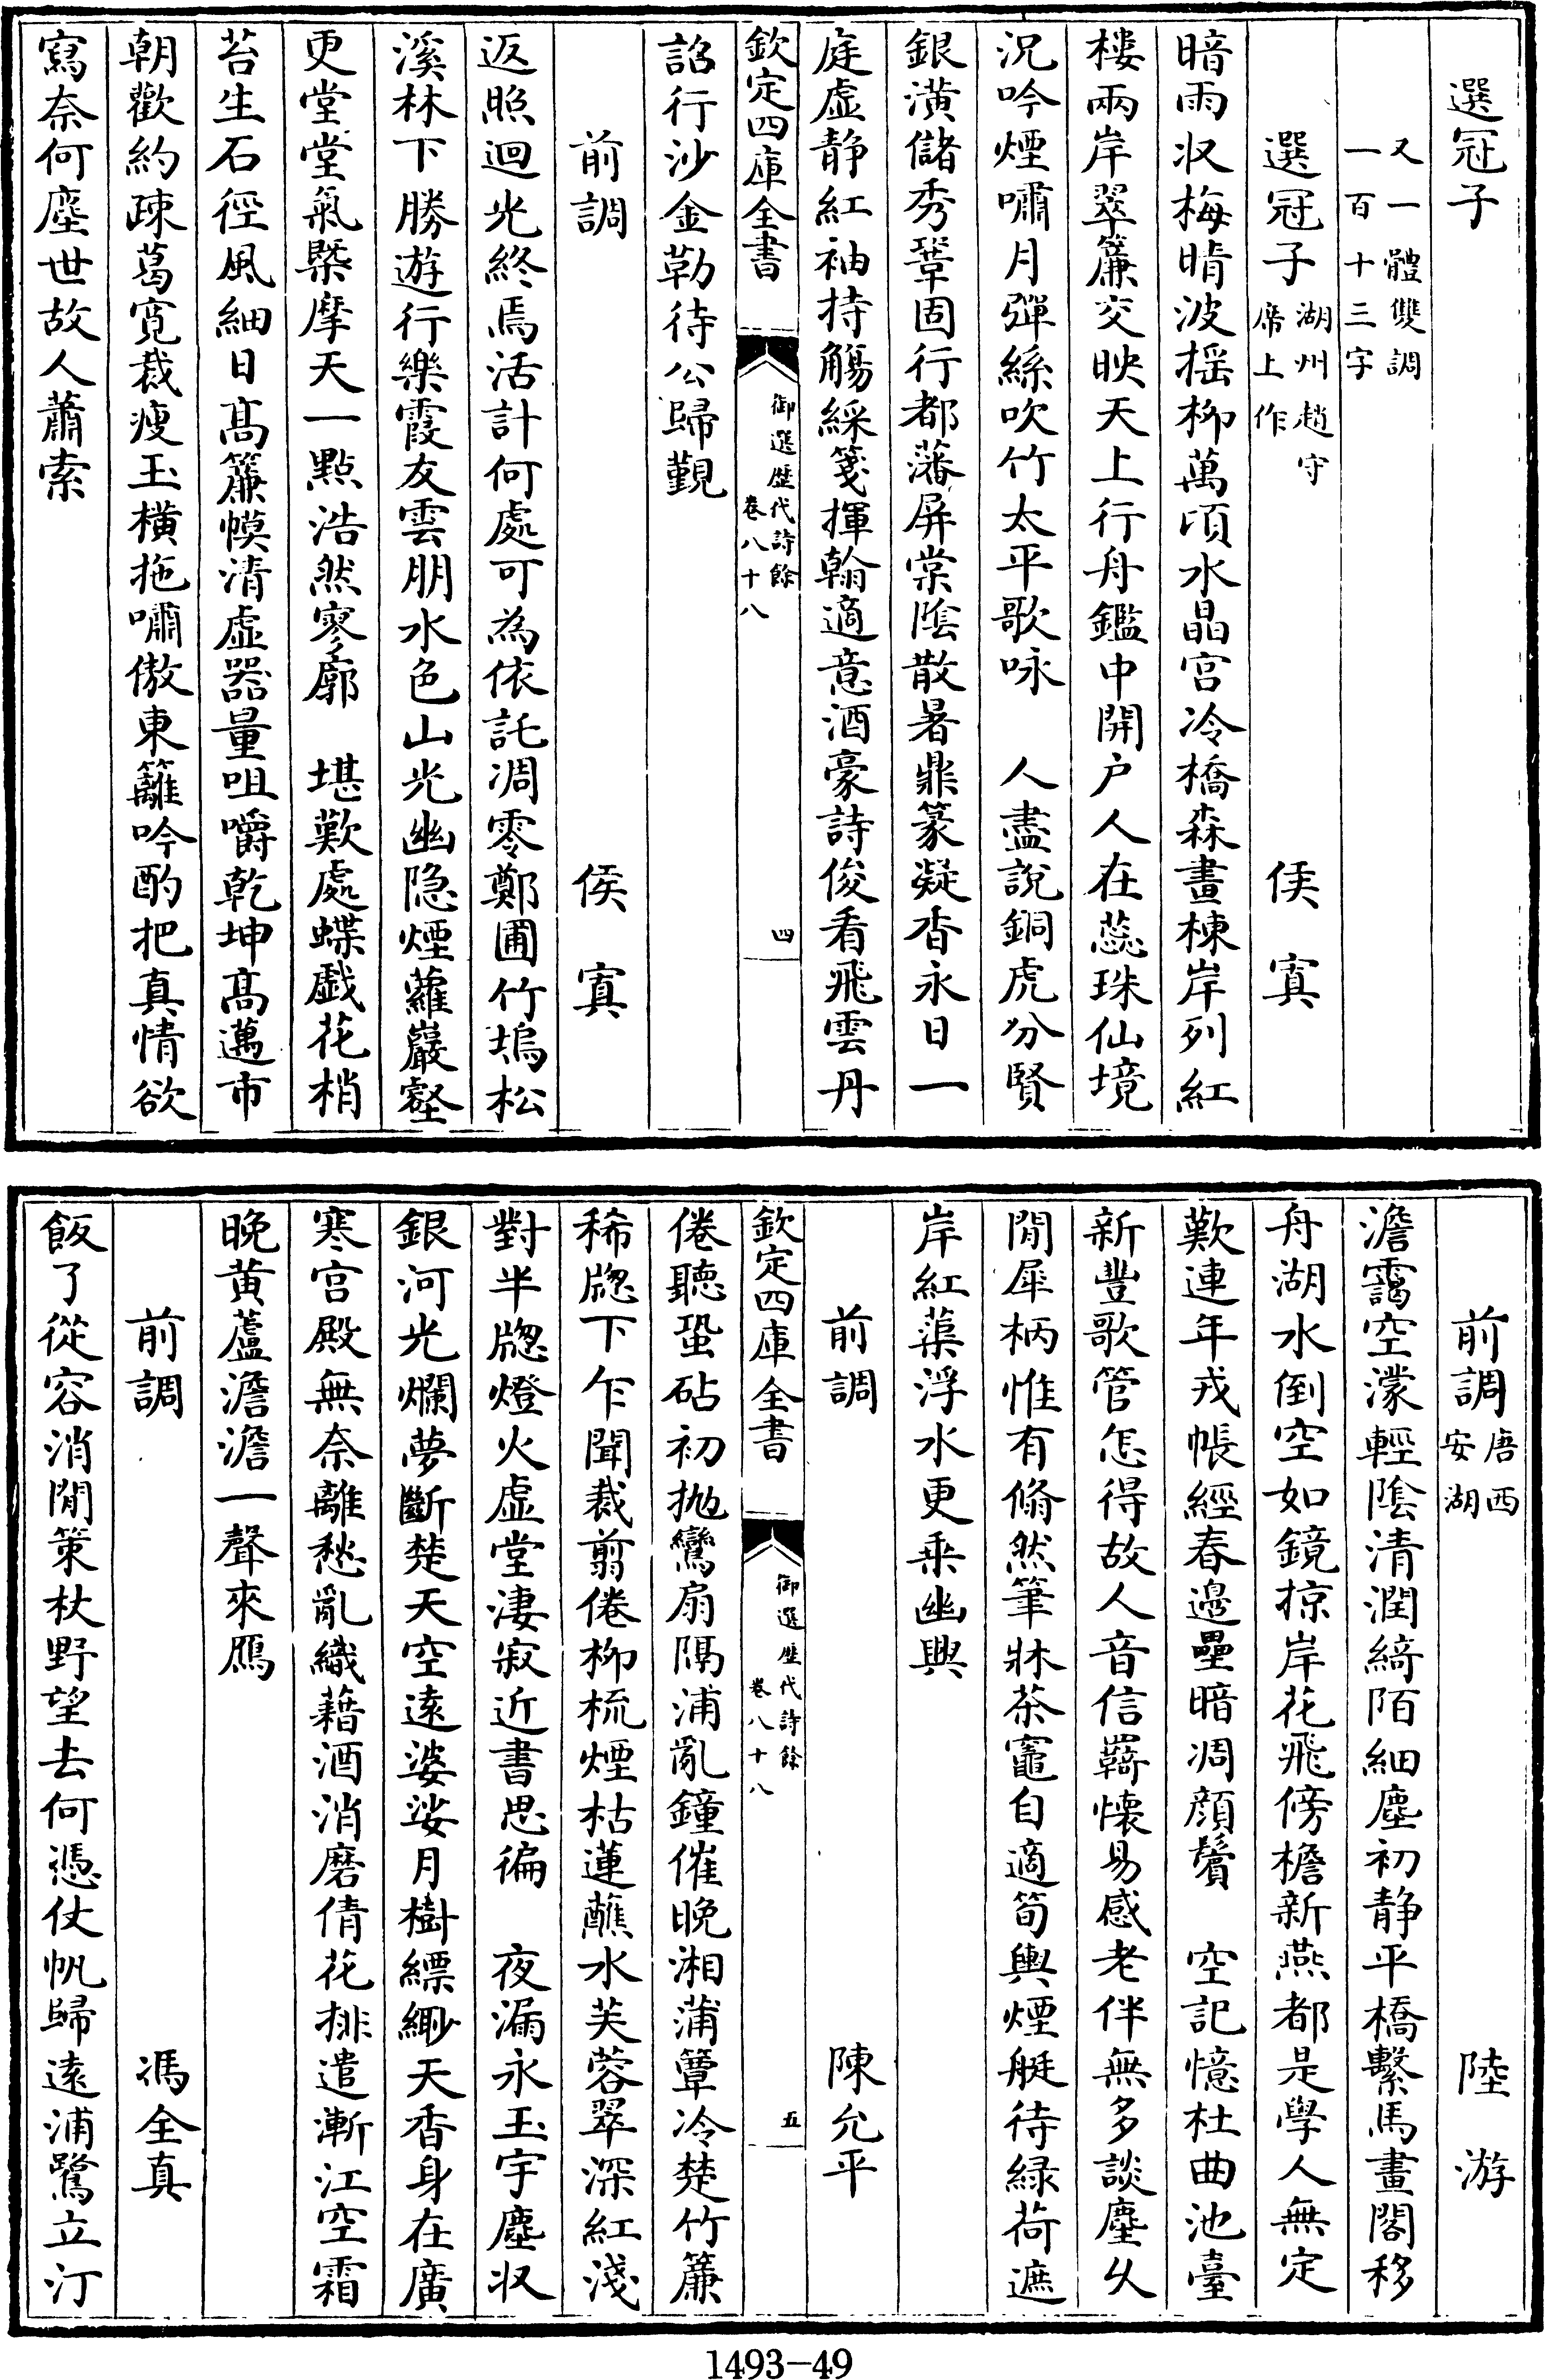 選冠子
又一體雙調
一百十三字
選冠子湖州趙守席上作　侯寘
暗雨収梅晴波揺栁萬頃水晶宫冷橋森畫棟岸列紅
樓兩岸翠簾交映天上行舟鑑中開户人在蕊珠仙境
况吟煙嘯月彈絲吹竹太平歌咏　人盡説銅虎分賢
銀潢儲秀鞏固行都藩屏棠陰散暑鼎篆凝香永日一
庭虚静紅袖持觴綵箋揮翰適意酒豪詩俊看飛雲丹
欽定四庫全書
御選歴代詩餘
卷八十八
四
詔行沙金勒待公歸覲
前調　侯寘
返照迴光終焉活計何處可為依託凋零鄭圃竹塢松
溪林下勝遊行樂霞友雲朋水色山光幽隐煙蘿巖壑
更堂堂氣槩摩天一點浩然寥廓　堪歎處蝶戯花梢
苔生石徑風細日髙簾幙清虚器量咀嚼乾坤髙邁市
朝歡約疎葛寛裁瘦玉横拖嘯傲東籬吟酌把真情欲
寫奈何塵世故人蕭索
前調唐安西湖　陸游
澹靄空濛輕陰清潤綺陌細塵初静平橋繫馬畫閣移
舟湖水倒空如鏡掠岸花飛傍檐新燕都是學人無定
歎連年戎帳經春邊壘暗凋顔鬢　空記憶杜曲池臺
新豐歌管怎得故人音信羇懐易感老伴無多談麈乆
閒犀柄惟有翛然筆牀茶竈自適筍輿煙艇待緑荷遮
岸紅蕖浮水更乘幽興
前調　陳允平
倦聽蛩砧初抛鸞扇隔浦亂鐘催晩湘蒲簟冷楚竹簾
稀牕下乍聞裁剪倦栁梳煙枯蓮蘸水芙蓉翠深紅淺
對半牕燈火虚堂凄寂近書思徧　夜漏永玉宇塵収
銀河光爛夢斷楚天空遠婆娑月樹縹緲天香身在廣
寒宫殿無奈離愁亂織藉酒消磨倩花排遣漸江空霜
晩黄蘆澹澹一聲來鴈
欽定四庫全書
御選歴代詩餘
卷八十八
五
前調　馮全真
飯了從容消閒策杖野望去何憑仗帆歸遠浦鷺立汀
1493-49